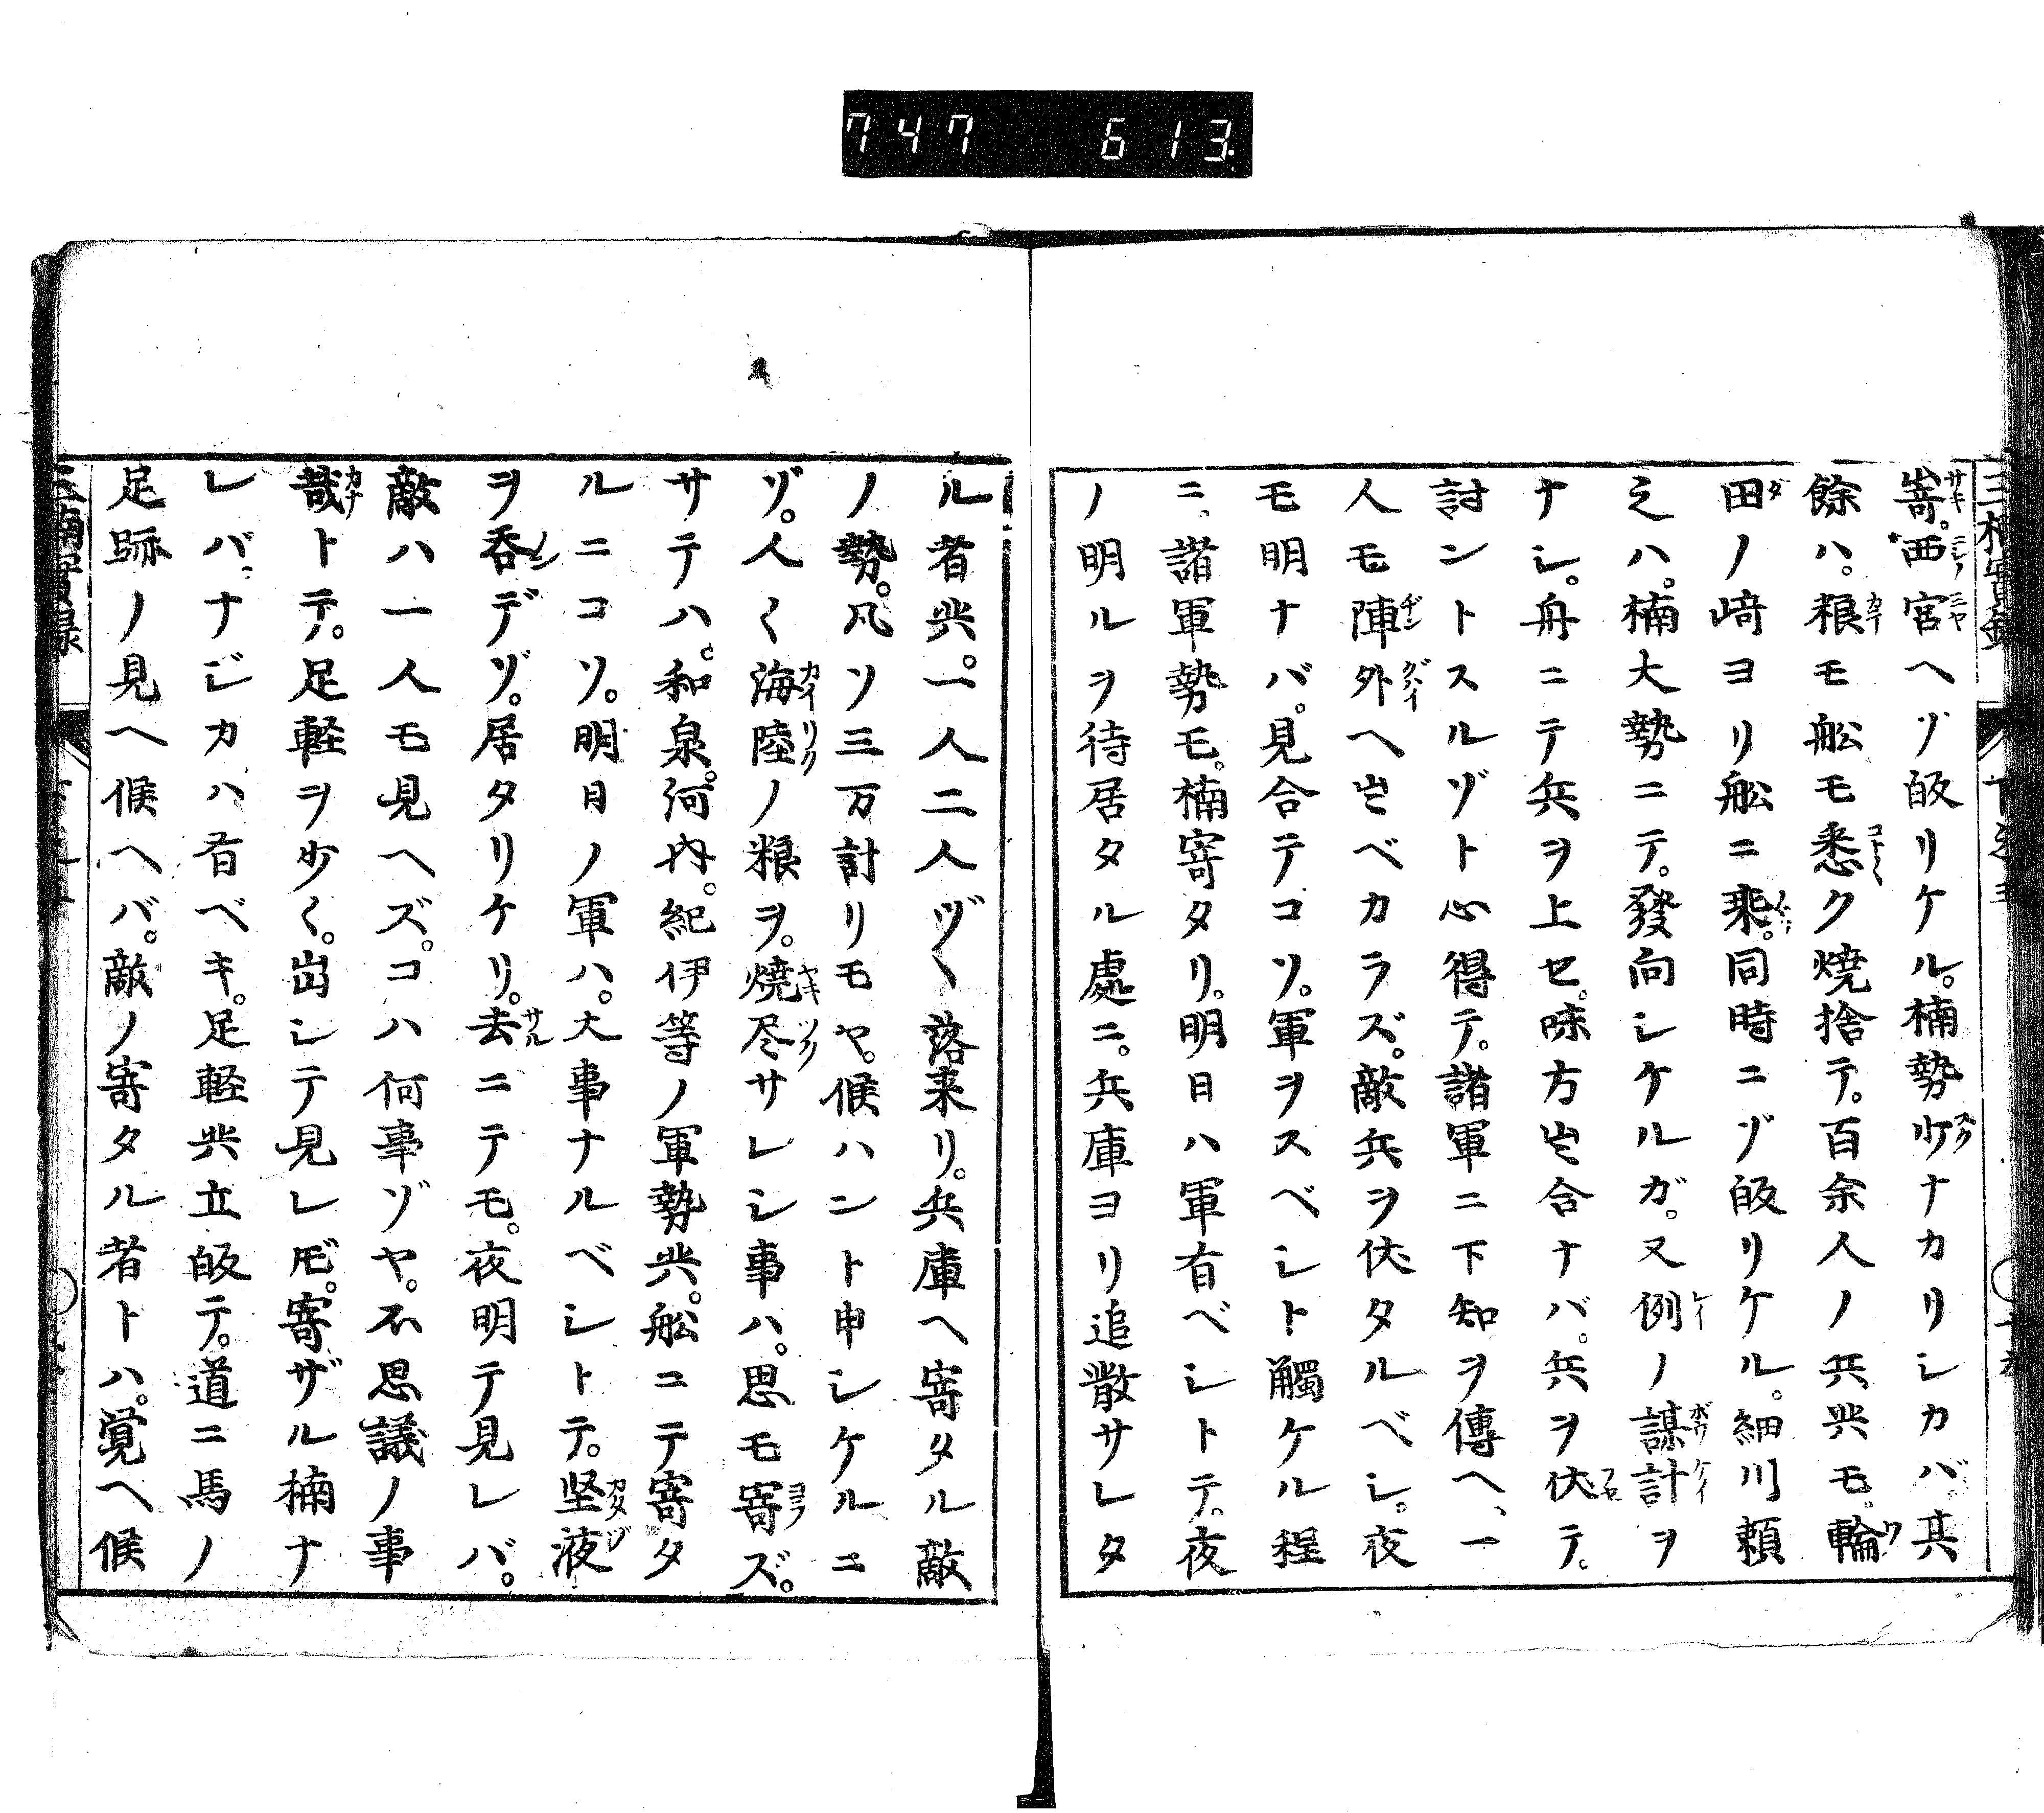 747 613
嵜。西宮ヘゾ皈リケル。楠勢少ナカリシカバ其
餘ハ。粮モ舩モ悉ク焼捨テ。百余人ノ兵共モ。輪
田ノ﨑ヨリ舩ニ乗。同時ニゾ皈リケル。細川頼
之ハ。楠大勢ニテ。發向シケルガ。又例ノ謀計ヲ
ナシ。舟ニテ兵ヲ上セ。味方出合ナバ。兵ヲ伏テ。
討ントスルゾト心得テ。諸軍ニ下知ヲ傳ヘ、一
人モ陣外ヘ出ベカラズ。敵兵ヲ伏タルベシ。夜
モ明ナバ。見合テコソ。軍ヲスベシト觸ケル程
ニ。諸軍勢モ。楠寄タリ。明日ハ軍有ベシトテ。夜
ノ明ルヲ待居タル處ニ。兵庫ヨリ追散サレタ
ル者共。一人二人ヅヽ落来リ。兵庫ヘ寄タル敵
ノ勢。凡ソ三万計リモヤ。候ハント申シケルニ
ゾ。人〱海陸ノ粮ヲ。焼尽サレシ事ハ。思モ寄ズ。
サテハ。和泉。河内。紀伊等ノ軍勢共。舩ニテ寄タ
ルニコソ。明日ノ軍ハ。大事ナルベシトテ。堅液
ヲ呑デゾ。居タリケリ。去ニテモ。夜明テ見レバ。
敵ハ一人モ見ヘズ。コハ何事ゾヤ。不思議ノ事
哉トテ。足軽ヲ少〱。出シテ見レ𪜈。寄ザル楠ナ
レバ、ナジカハ有ベキ。足軽共立皈テ。道ニ馬ノ
足跡ノ見ヘ候ヘバ。敵ノ寄タル者トハ。覚ヘ候